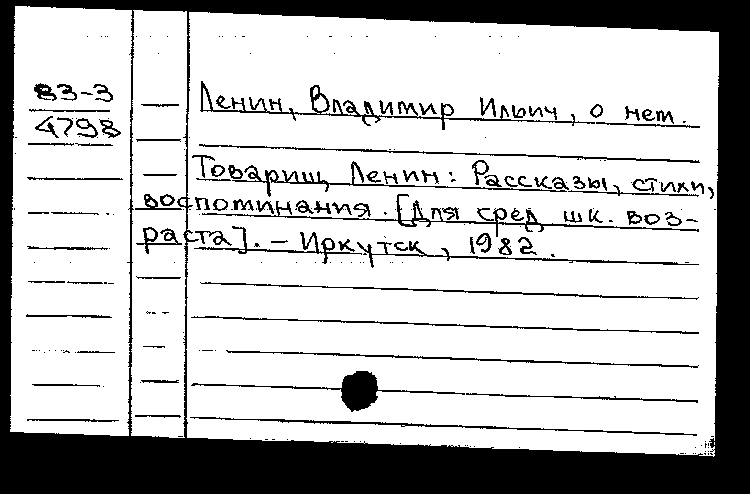 83-3
4798
Ленин, Владимир Ильич, о нем.
Товарищ Ленин: Рассказы, стихи,
воспоминания. [Для сред шк. воз-
раста]. – Иркутск, 1982.